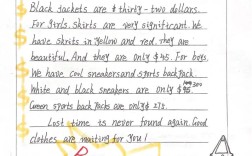 Black jackets are $ thirty-two dollars.
For girls. Skirts are very significant. We
have skrits in yellow and red. They are
beautiful. And they are only $45. For boys.
We have cool sneakers and sports backJack.
White and black sneakers are only $95
Green sports backJacks are only $ 275.
Lost time is never found again. Good
clothes are waiting for you!